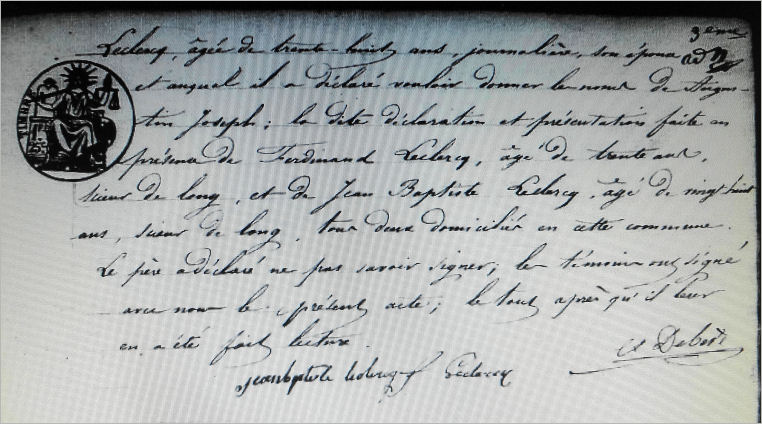 3eme
Leclercq, âgée de trente-huit ans, journalière, son épouse
et auquel il a déclaré vouloir donner le noms de Augus-
tin Joseph ; la dite déclaration et présentation faite en
présence de Ferdinand Leclercq, âgé de trente ans,
sieur de long, et de Jean Baptiste Leclercq, âgé de vingt huit
ans, sieur de long, tous deux domiciliés en cette commune.
Le père a déclaré ne pas savoir signer ; les témoins ont signé
avec nous le présent acte ; le tout après qu'il leur
en a été fait lecture.
Jean baptiste leclercq Leclercq